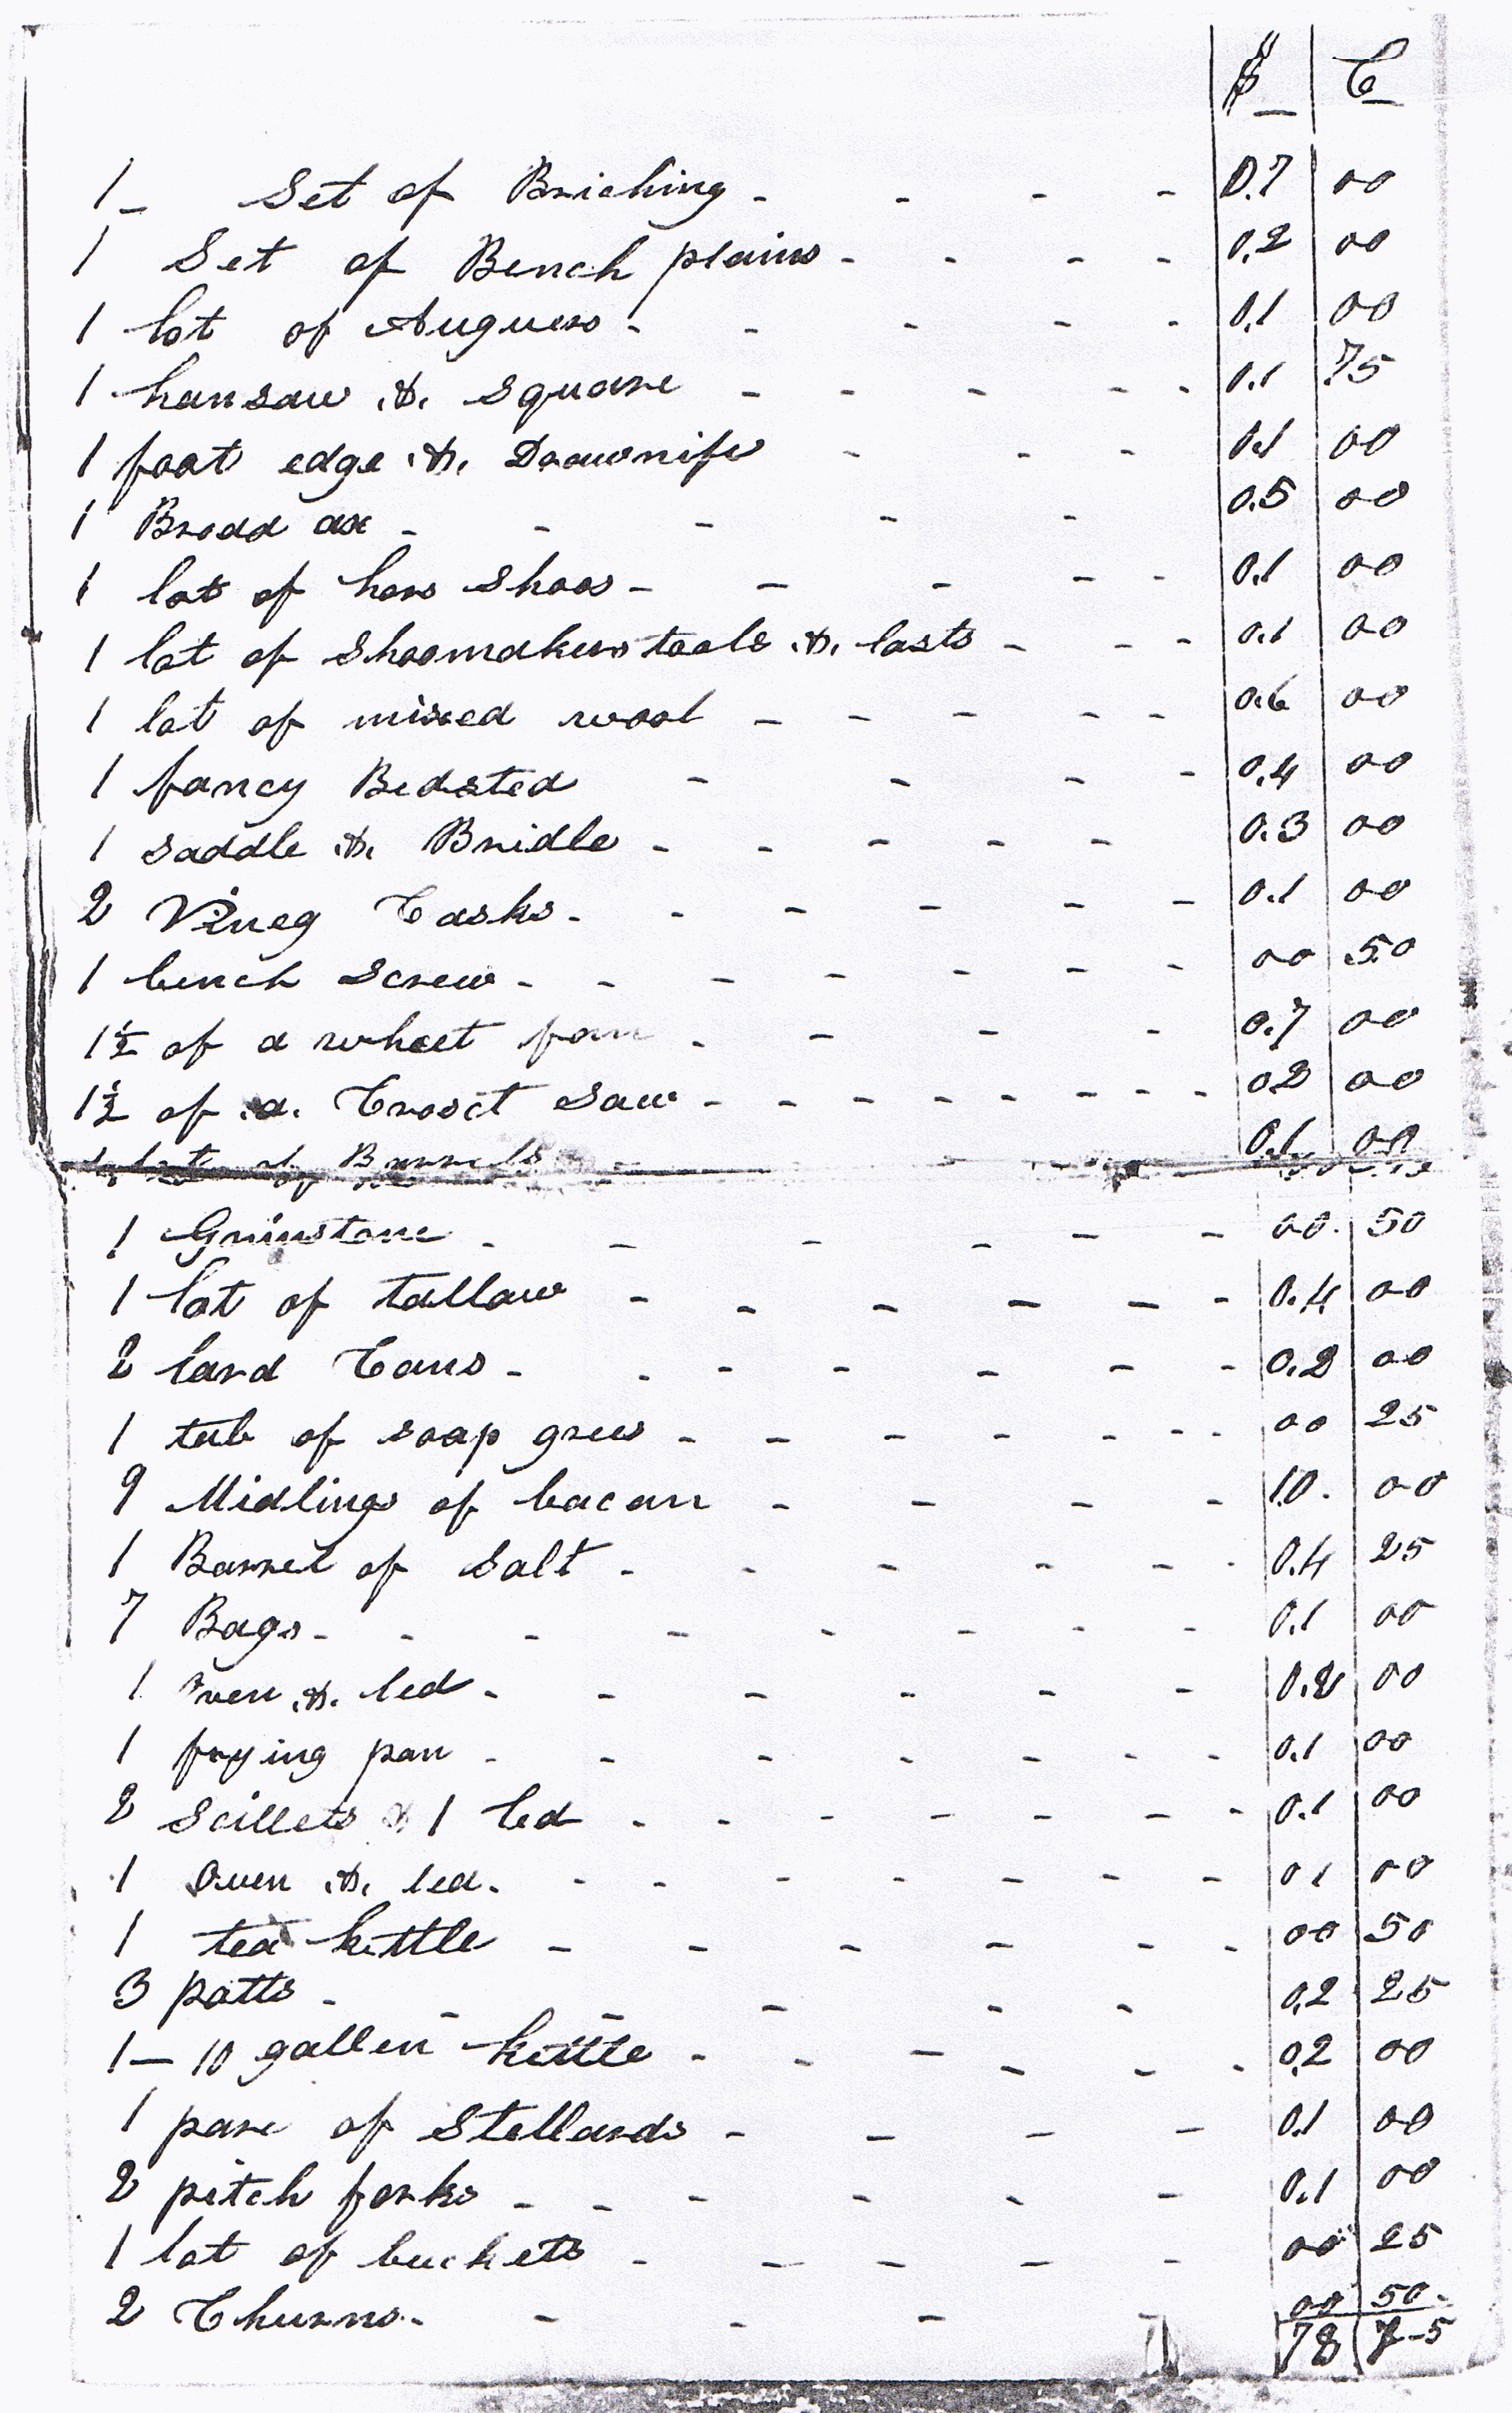 $ C
1 - Set of Briching - - - - 0.7 00
1 Set of Bench plains - - - - 0.2 00
1 lot of Auguers - - - - - 0.1 00
1 hansaw & Square - - - - - 0.1 .75
1 foot edge & Drawnife - - - 0.1 00
1 Broad ax - - - - - 0.5 00
1 lot of hors Shoos - - - - - 0.1 00
1 lot of Shoomakers tools & lasts - - - 0.1 00
1 lot of mixed wool - - - - - 0.6 00
1 fancy Bedsted - - - - 0.4 00
1 Saddle & Bridle - - - - - 0.3 00
2 Vineg Casks - - - - - - 0.1 00
1 bench Screw - - - - - - - 00 .50
1½ of a wheet fan - - - - 0.7 00
1½ of a Croosct Saw - - - - - - - - 02 00
of Barrels 0.1 00
1 Grinstone - - - - - - 00. 50
1 lot of tallow - - - - - - 0.4 00
2 lard Cans - - - - - - 0.2 00
1 tub of soap grees - - - - - - - 00 25
9 Midlings of bacon - - - - 10. 00
1 Barrel of Salt - - - - - - 0.4 25
7 Bags - - - - - - - - 0.1 00
1 oven & led - - - - - - 0.2 00
1 frying pan - - - - - - - 0.1 00
2 Scillets & 1 led - - - - - - - 0.1 00
1 Oven & led - - - - - - - - 01 00
1 tea kettle - - - - - - 00 50
3 potts - - - - - - 0.2 25
1 - 10 gallen kettle - - - - - - 0.2 00
1 pare of Stellards - - - - 0.1 00
2 pitch forks - - - - - - 0.1 00
1 lot of buckets - - - - - 00 25
2 Churns - - - - 00 50
78 75